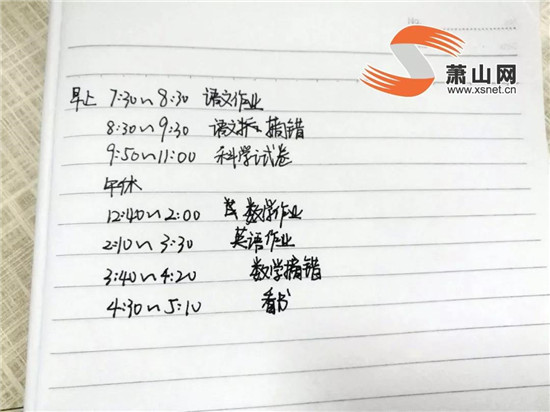 No.
萧山网
www.xsnet.cn
早上 7:30~8:30 语文作业
8:30~9:30 语文 摘错
9:50~11:00 科学试卷
午休
12:40~2:00 数学作业
2:10~3:30 英语作业
3:40~4:20 数学摘错
4:30~5:10 看书